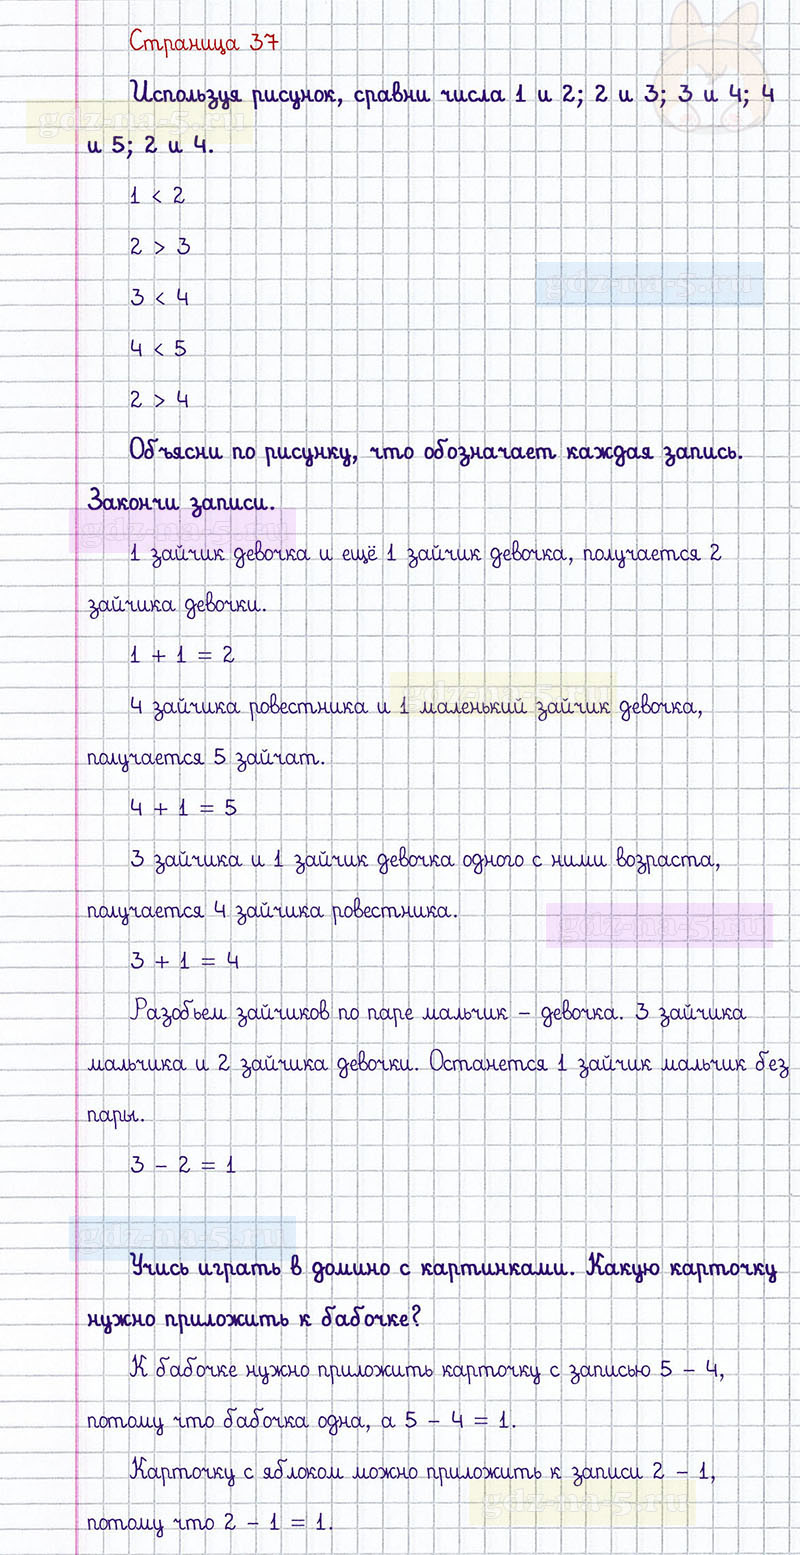 Страница 37
Используя рисунок, сравни числа 1 и 2; 2 и 3; 3 и 4; 4
gdz-na-5.ru
и 5; 2 и 4.
1 < 2
2 > 3
gdz-na-5.ru
3 < 4
4 < 5
2 > 4
Объясни по рисунку, что обозначает каждая запись.
Закончи записи.
gdz-na-5.ru
1 зайчик девочка и ещё 1 зайчик девочка, получается 2
зайчика девочки.
1 + 1 = 2
gdz-na-5.ru
4 зайчика ровестника и 1 маленький зайчик девочка,
получается 5 зайчат.
4 + 1 = 5
3 зайчика и 1 зайчик девочка одного с ними возраста,
получается 4 зайчика ровестника.
gdz-na-5.ru
3 + 1 = 4
Разобьем зайчиков по паре мальчик – девочка. 3 зайчика
мальчика и 2 зайчика девочки. Останется 1 зайчик мальчик без
пары.
3 – 2 = 1
gdz-na-5.ru
Учись играть в домино с картинками. Какую карточку
нужно приложить к бабочке?
К бабочке нужно приложить карточку с записью 5 – 4,
потому что бабочка одна, а 5 – 4 = 1.
Карточку с яблоком можно приложить к записи 2 – 1,
gdz-na-5.ru
потому что 2 – 1 = 1.